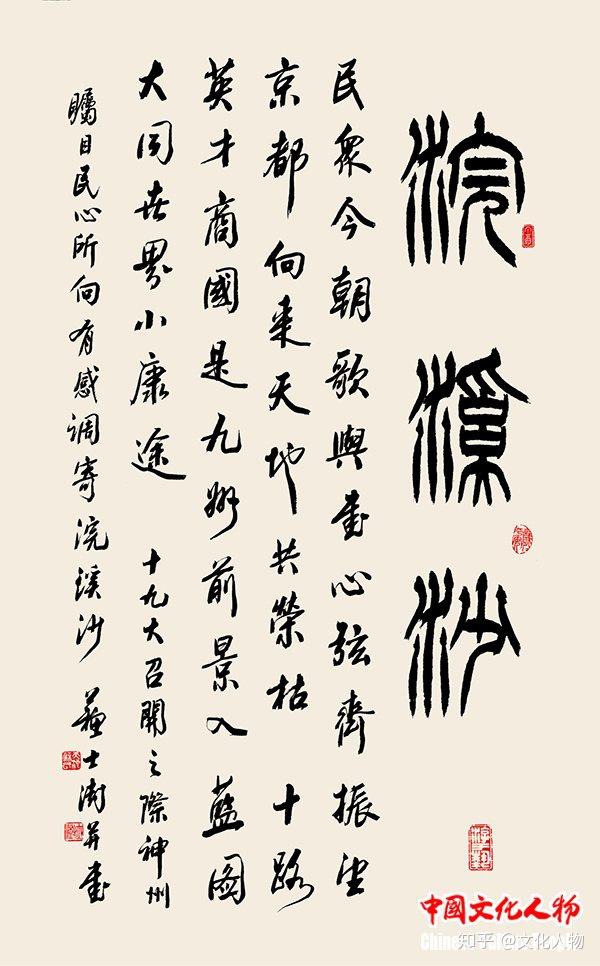 浣溪沙
民众今朝歌与书心弦齐振望
京都向来天地共荣枯 十路
英才商國是九州前景入藍图
大同世界小康途 十九大召開之际神州
瞩目民心所向有感调寄浣溪沙 苏士澍并书
中國文化人物
知乎 @文化人物